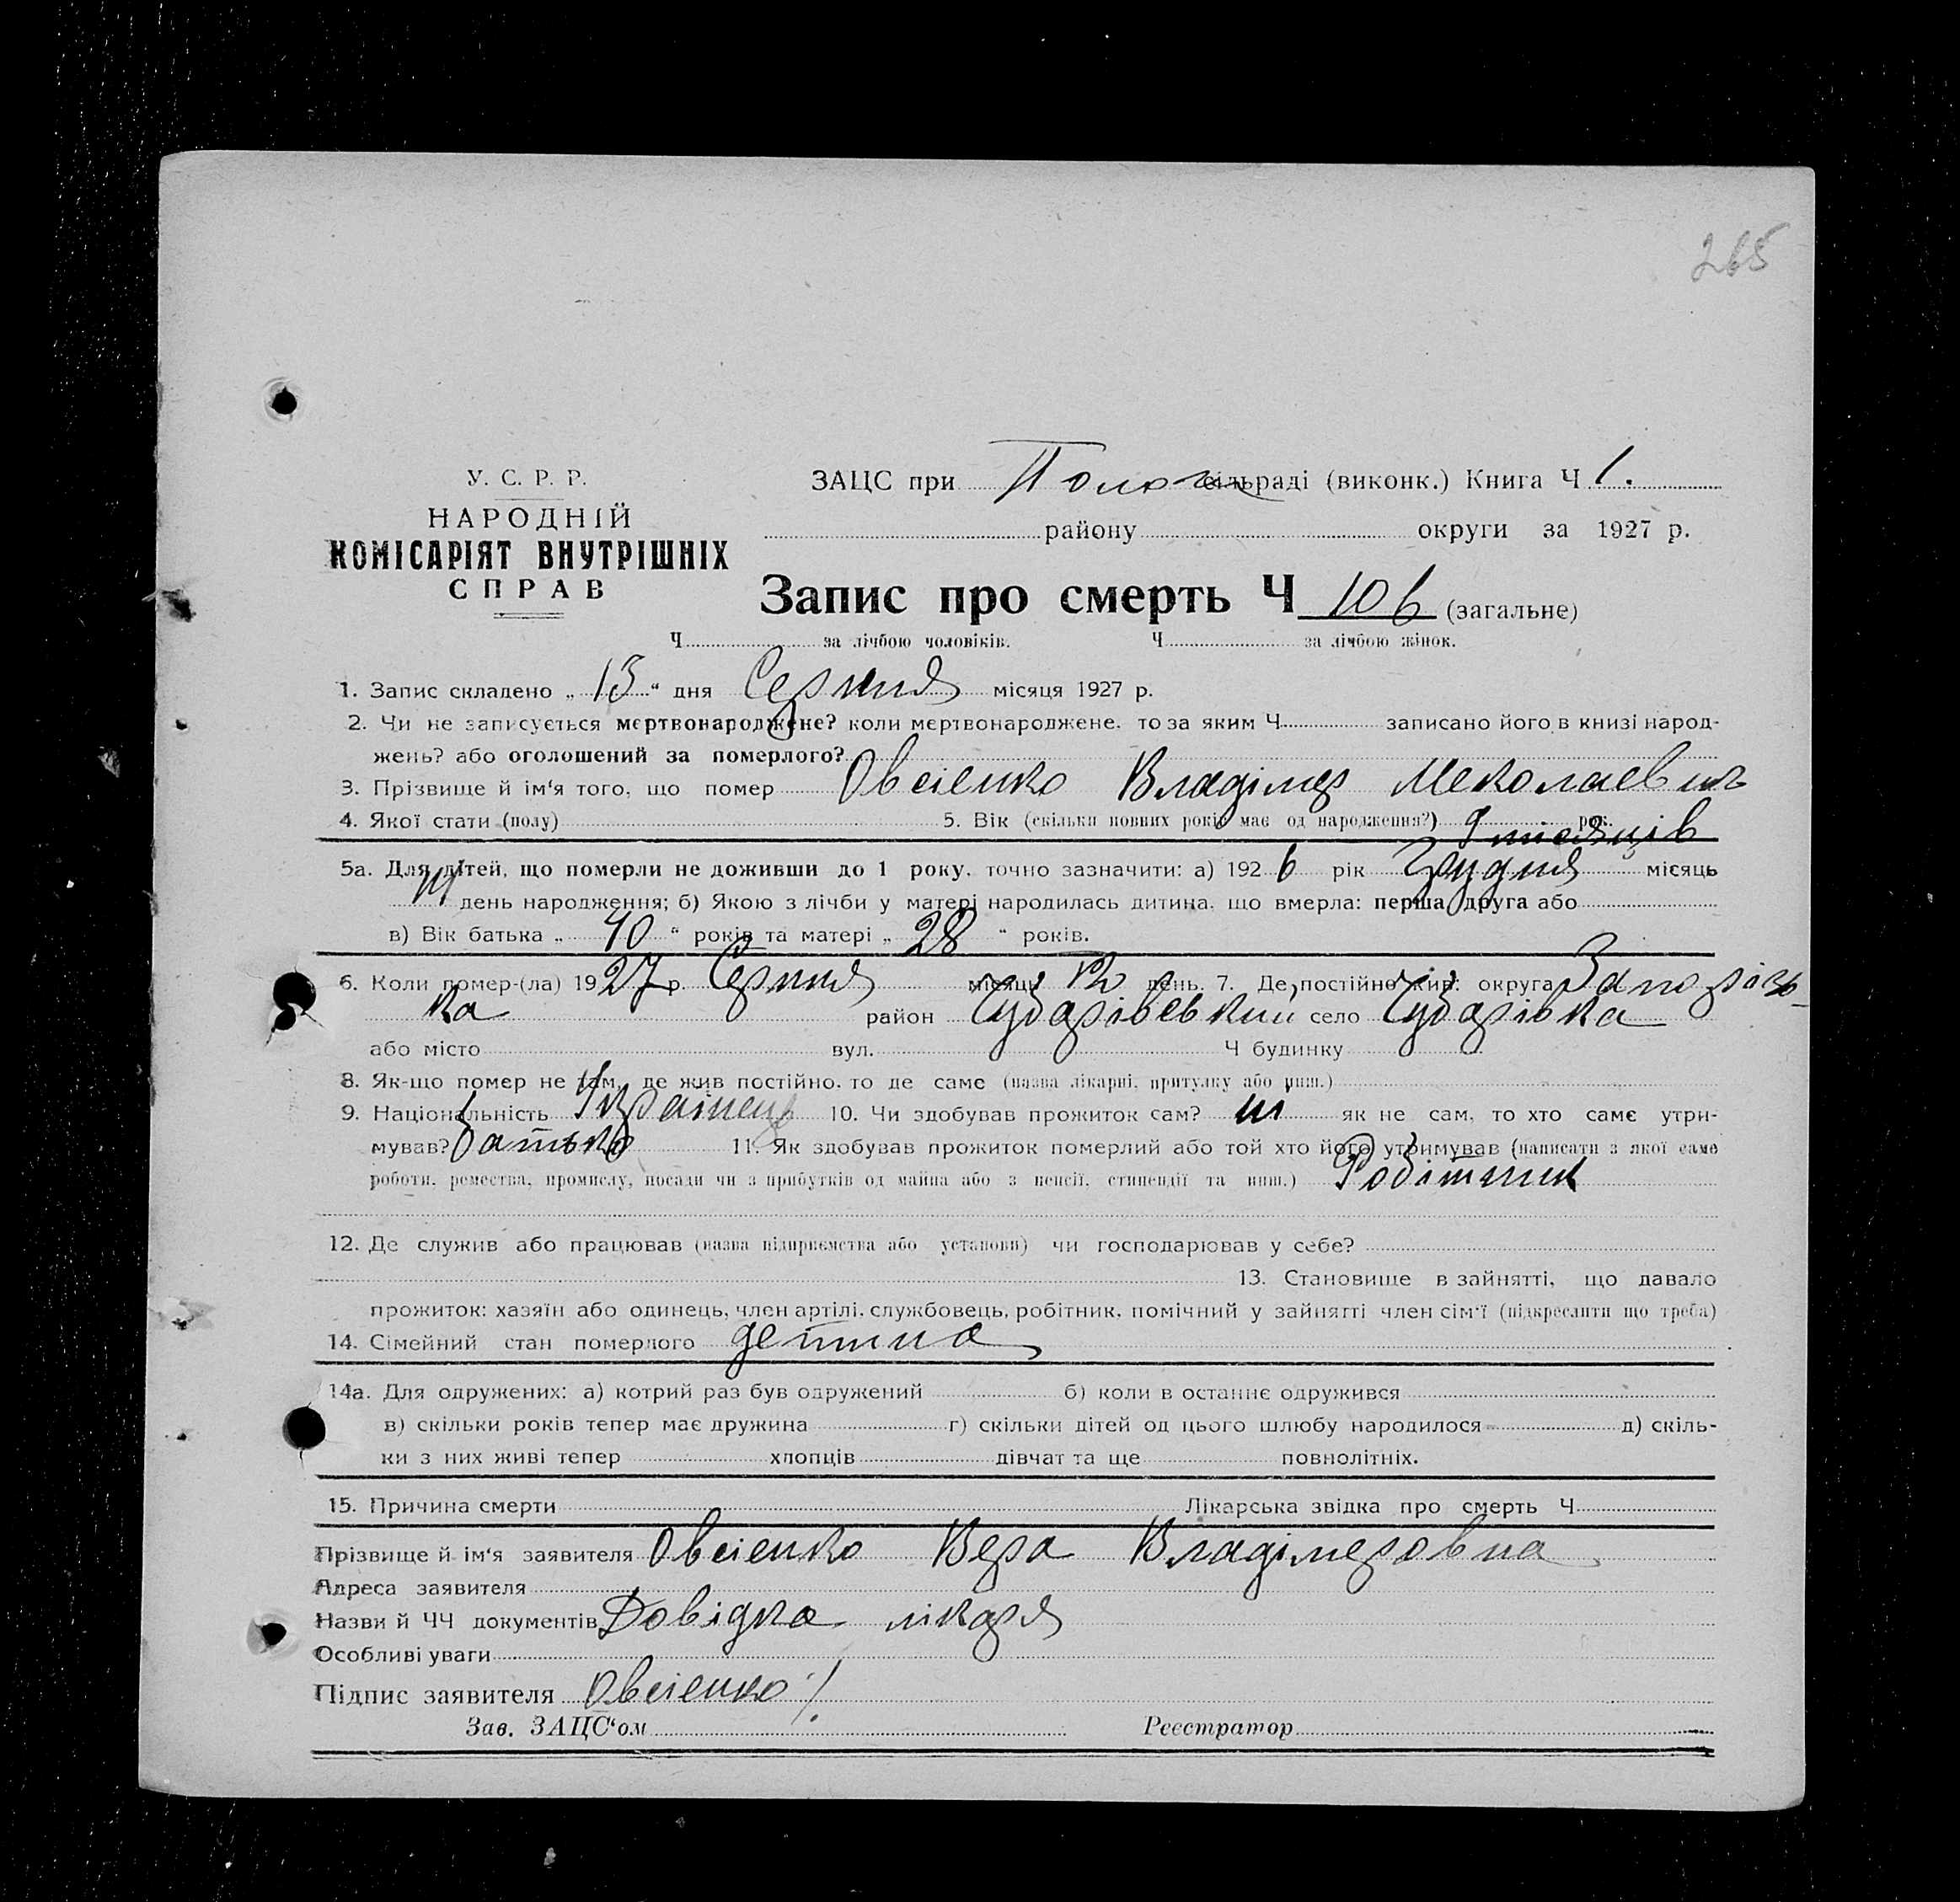 265
У. С. Р. Р.
НАРОДНІЙ
КОМІСАРІЯТ ВНУТРІШНІХ
СПРАВ
ЗАЦС при Полог сільраді (виконк.) Книга Ч 1.
району округи за 1927 р.
Запис про смерть Ч 106 (загальне)
Ч за лічбою чоловіків. Ч за лічбою жінок.
1. Запис складено „ 13 “ дня Серпня місяця 1927 р.
2. Чи не записується мертвонароджене? коли мертвонароджене. то за яким Ч записано його в книзі народ-
жень? або оголошений за померлого?
3. Прізвище й ім‘я того, що помер Овсіенко Владімер Меколаевич
4. Якої стати (полу) 5. Вік (скільки повних років має од народження?) 9 місяців рок.
5а. Для дітей, що померли не доживши до 1 року. точно зазначити: а) 192 6 рік Грудня місяць
14 день народження; б) Якою з лічби у матері народилась дитина. що вмерла: перша друга або
в) Вік батька „ 40 “ років та матері „ 28 “ років.
6. Коли помер-(ла) 19 27 р Серпня місяць 12 день. 7. Де постійно жив: округа Запорізь-
ка район Чубарівський село Чубарівка
або місто вул. Ч будинку
8. Як-що помер не там, де жив постійно. то де саме (назва лікарні, притулку або инш.)
9. Національність Украінець 10. Чи здобував прожиток сам? ні як не сам, то хто саме утри-
мував? батько 11. Як здобував прожиток померлий або той хто його утримував (написати з якої саме
роботи. ремества, промислу, посади чи з прибутків од майна або з пенсії, стипендії та инш.) Робітник
12. Де служив або працював (назва підприємства або установи) чи господарював у себе?
13. Становище в зайнятті, що давало
прожиток: хазяїн або одинець, член артілі. службовець, робітник, помічний у зайнятті член сім‘ї (підкреслити що треба)
14. Сімейний стан померлого детина
14а. Для одружених: а) котрий раз був одружений б) коли в останнє одружився
в) скільки років тепер має дружина г) скільки дітей од цього шлюбу народилося д) скіль-
ки з них живі тепер хлопців дівчат та ще повнолітніх.
15. Причина смерти Лікарська звідка про смерть Ч
Прізвище й ім‘я заявителя Овсіенко Вера Владімеровна
Адреса заявителя
Назви й ЧЧ документів Довідка лікаря
Особливі уваги
Підпис заявителя Овсіенко
Зав. ЗАЦС‘ом Реєстратор